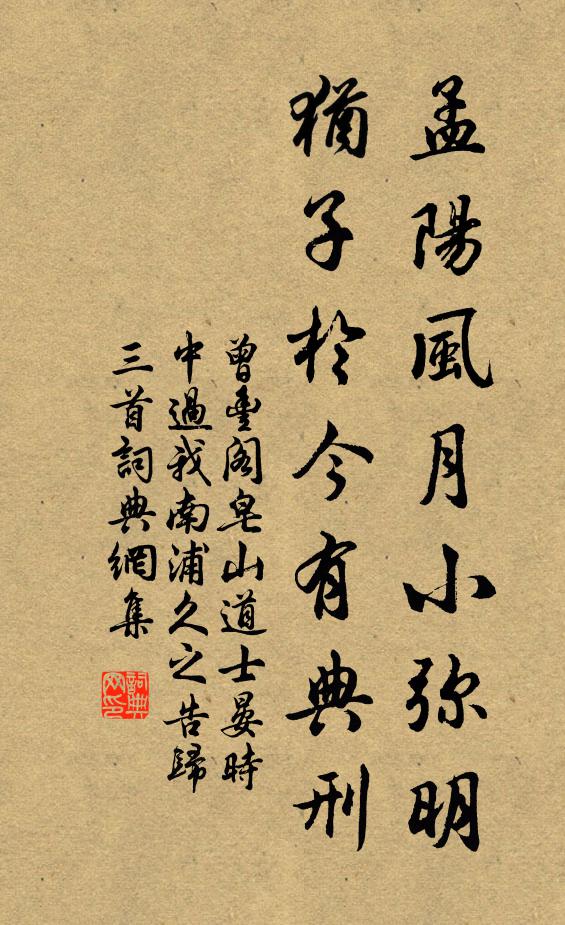 孟陽風月小弥明
猶子於今有典刑
曾豐閣皂山道士晏時
中過我南浦久之告歸
三首詞典網集
詞典网印